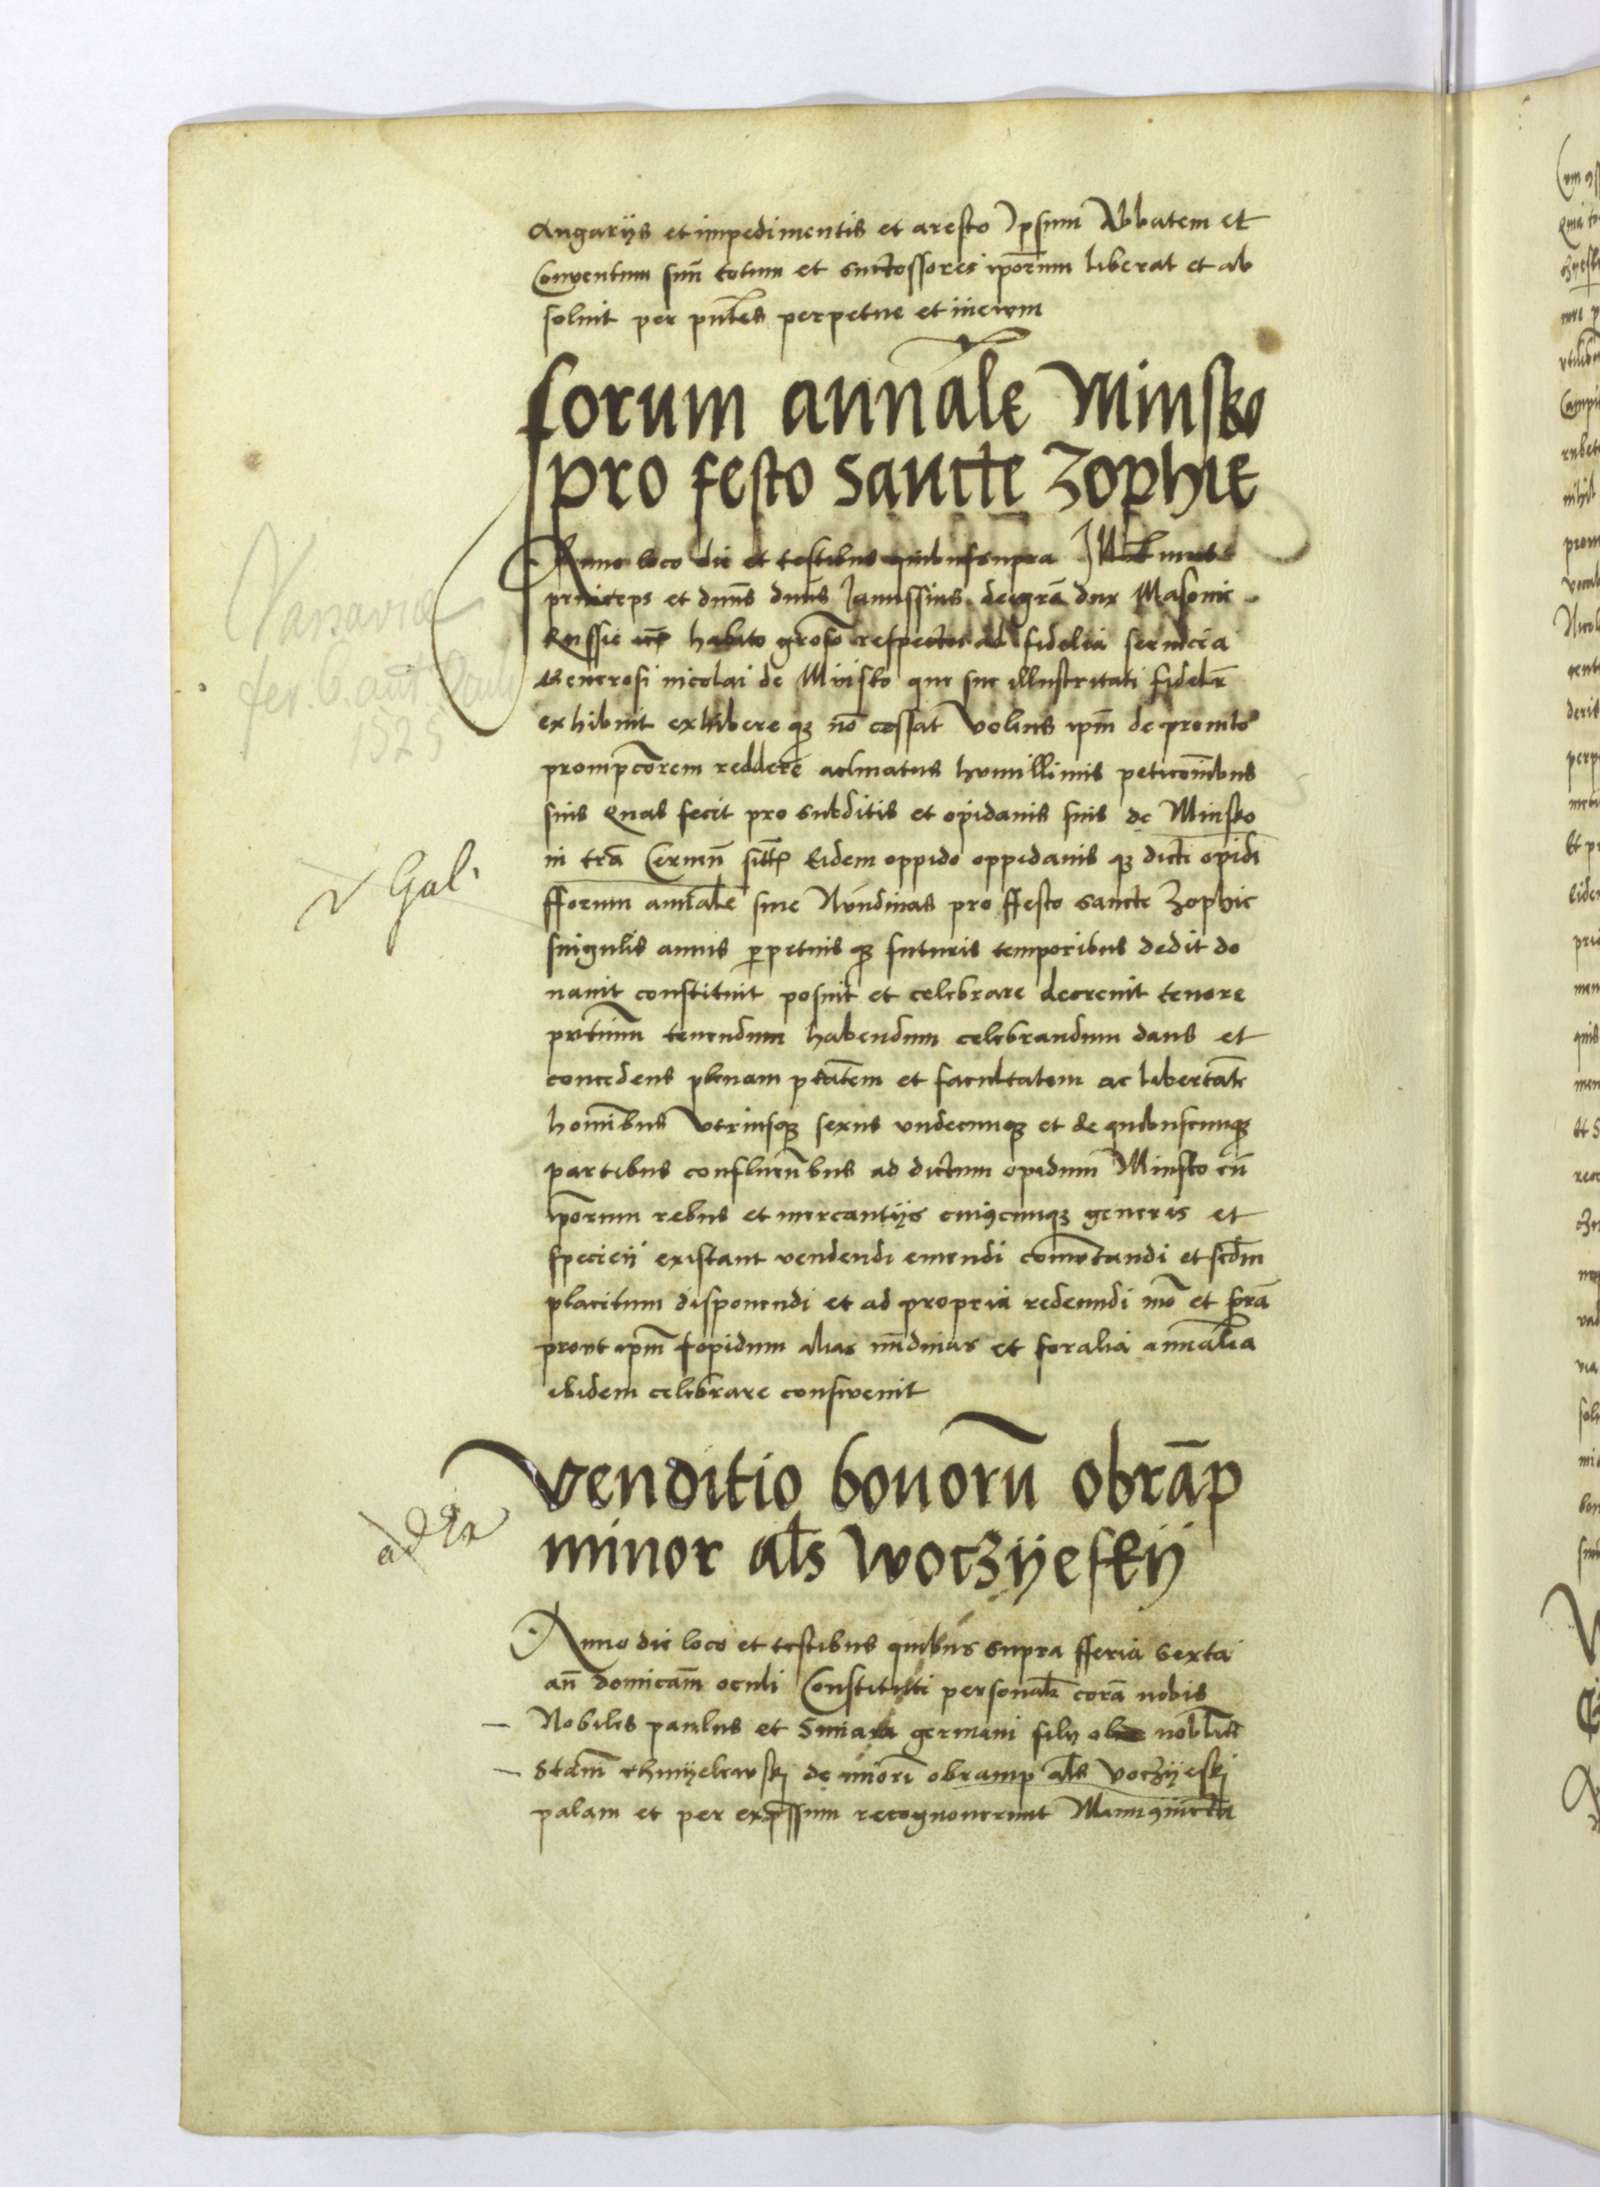 Angariis et impedimentis et aresto Ipsum Abbatem et
Conventum suū totum et successores ipōrum liberat et ab
solvit per pn̄tes perpetue et in ewm
forum annāle Minsko
pro festo sancte Zophie
Anno loco die et testibus quibus supra Illustris
princeps et dnn̄s dnn̄s Janussius dei gr̄a dux Masovie
Russie habito grōso respectu ad fidelia servicia
Generosi nicolai de Minsko que sue illustritati fidelr̄
exhibuit exhibere qꝫ nō cessat Volens ipm̄ de promto
prompcōrem reddere admatus humillimis peticōnibus
suis Quas fecit pro subditis et opidanis suis de Minsko
in tr̄a Cernēn sitꝭ Eidem oppido oppidanis qꝫ dicti opidi
fforum annale sive Nundinas pro ffesto sancte Zophie
singulis annis perpetuis qꝫ futuris temporibus dedit do
navit constituit posuit et celebrare decrevit tenore
pn̄tium tenendum habendum celebrandum dans et
concedens plenam ptātem et facultatem ac libertatē
hominibus Utriusqꝫ sexus undecunqꝫ et de quibuscunqꝫ
partibus confluen̄bus ad dictum opidum Minsko cū
ipōrum rebus et mercantiis cuiuscunqꝫ generis et
speciei existant vendendi emendi comutandi et scd̄m
placitum disponendi et ad propria redeundi mō et for̄a
prout ipm̄ opidum alias nūdinas et foralia annalia
ibidem celebrare consuevit
Venditio bonorū obrāp
minor al̄s woczyeskij
Anno die loco et testibus quibus supra fferia sexta
an̄ domicam̄ oculi Constituti personalr̄ corā nobis
Nobiles paulus et germani filii nobilis
Stanī chmyelewskj de minori obramp al̄s voczyeskj
palam et per expssum recognoverunt
v Gal.
Varsavia
fer 6. ant Oculi
1525